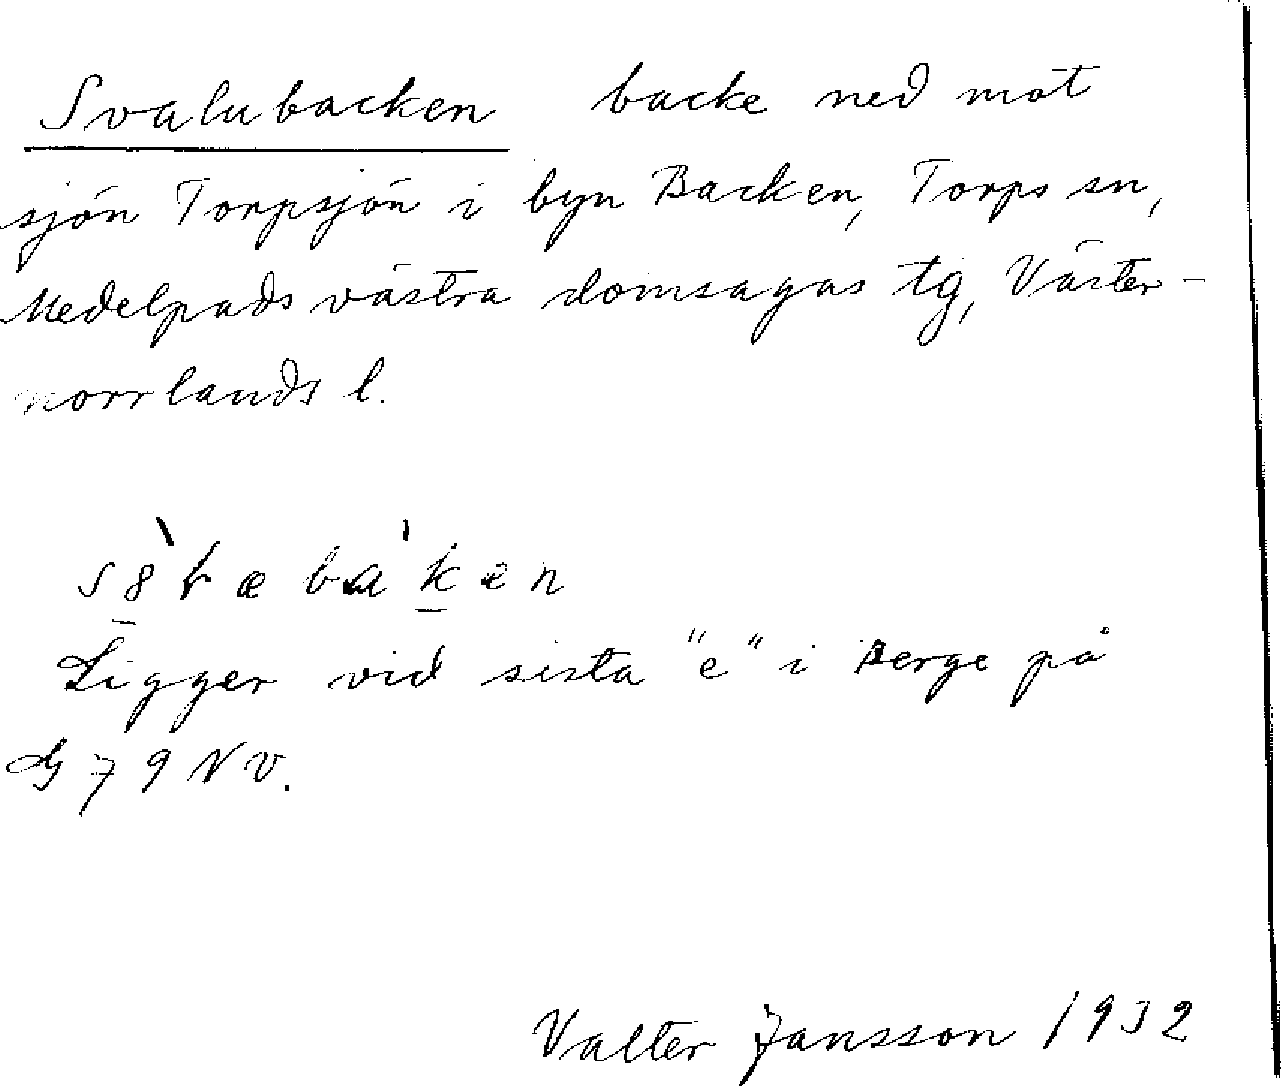 Svalubacken backe ned mot
sjön Torpsjön i byn Backen, Torps sn,
Medelpads västra domsagas tg, Väster-
norrlands l.
Ligger vid sista "e" i Berge på
G 79 NV.
Valter Jansson 1932